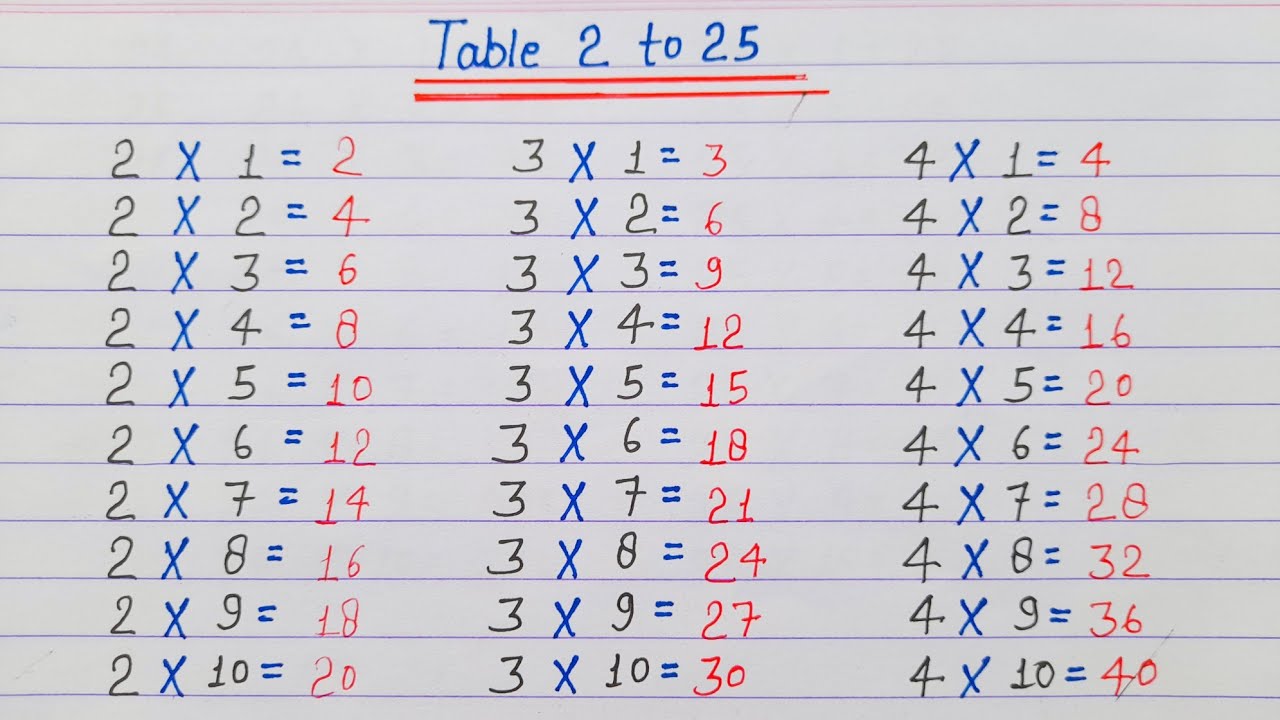 Table 2 to 25
2 X 1 = 2 3 X 1 = 3 4 X 1 = 4
2 X 2 = 4 3 X 2 = 6 4 X 2 = 8
2 X 3 = 6 3 X 3 = 9 4 X 3 = 12
2 X 4 = 8 3 X 4 = 12 4 X 4 = 16
2 X 5 = 10 3 X 5 = 15 4 X 5 = 20
2 X 6 = 12 3 X 6 = 18 4 X 6 = 24
2 X 7 = 14 3 X 7 = 21 4 X 7 = 28
2 X 8 = 16 3 X 8 = 24 4 X 8 = 32
2 X 9 = 18 3 X 9 = 27 4 X 9 = 36
2 X 10 = 20 3 X 10 = 30 4 X 10 = 40